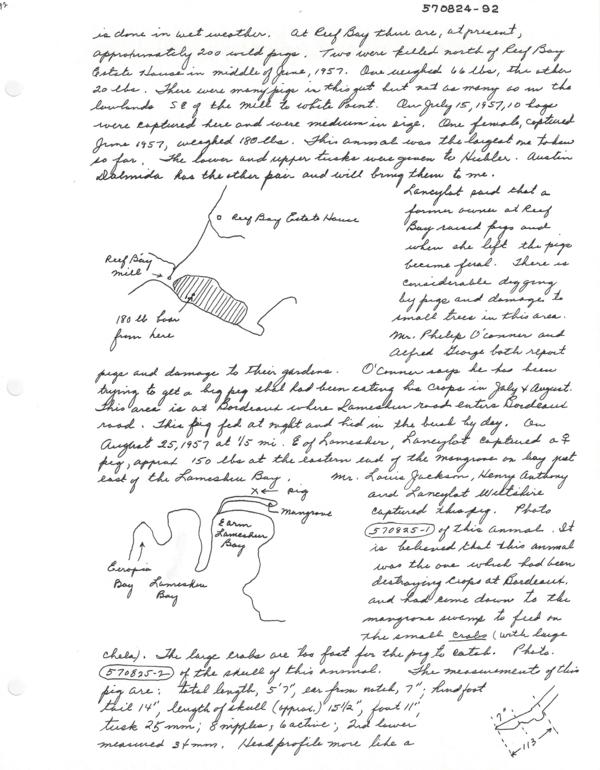 570824-92
is done in wet weather. At Reef Bay there are, at present,
approximately 200 wild pigs. Two were killed north of Reef Bay
Estate House in middle of June, 1957. One weighed 66 lbs, the other
20 lbs. There were many pigs in this gut but not as many as in the
lowlands S E of the Mill to White Point. On July 15, 1957, 10 hogs
were captured here and were medium in size. One female, captured
June 1957, weighed 180 lbs. This animal was the largest one taken
so far. The lower and upper tusks were given to Hibler. Austin
Dalmida has the other pair and will bring them to me.
Lancylot said that a
former owner at Reef
Bay raised pigs and
when she left the pigs
became feral. There is
considerable digging
by pigs and damage to
small trees in this area.
Mr. Philip O'conner and
Alfred George both report
Reef Bay Estate House
Reef Bay
mill
180 lb boar
from here
pigs and damage to their gardens. O'Conner says he has been
trying to get a big pig that had been eating his crops in July & August.
This area is at Bordeaux where Lameshur road enters Bordeaux
road. This pig fed at night and hid in the bush by day. On
August 25, 1957 at 1/5 mi. E of Lameshur, Lancylot captured a ♀
pig, approx 150 lbs at the eastern end of the mangrove on bay just
east of the Lameshur Bay. Mr. Louis Jackson, Henry Anthony
and Lancylot Wiltshire
captured this pig. Photo
570825-1 of this animal. It
is believed that this animal
was the one which had been
destroying crops at Bordeaux.
and had come down to the
mangrove swamp to feed on
the small crabs (with large
X ← pig
mangrove
Lameshur
Bay
Europia
Bay
Lameshur
Bay
chela). The large crabs are too fast for the pig to catch. Photo.
570825-2 of the skull of this animal. The measurements of this
pig are: total length, 5'7", ear from notch, 7"; hind foot
tail 14", length of skull (approx.) 15 1/2", foot 11",
tusk 25 mm; 8 nipples, 6 active; 2nd lower
measured 34 mm. Head profile more like a
7"
113